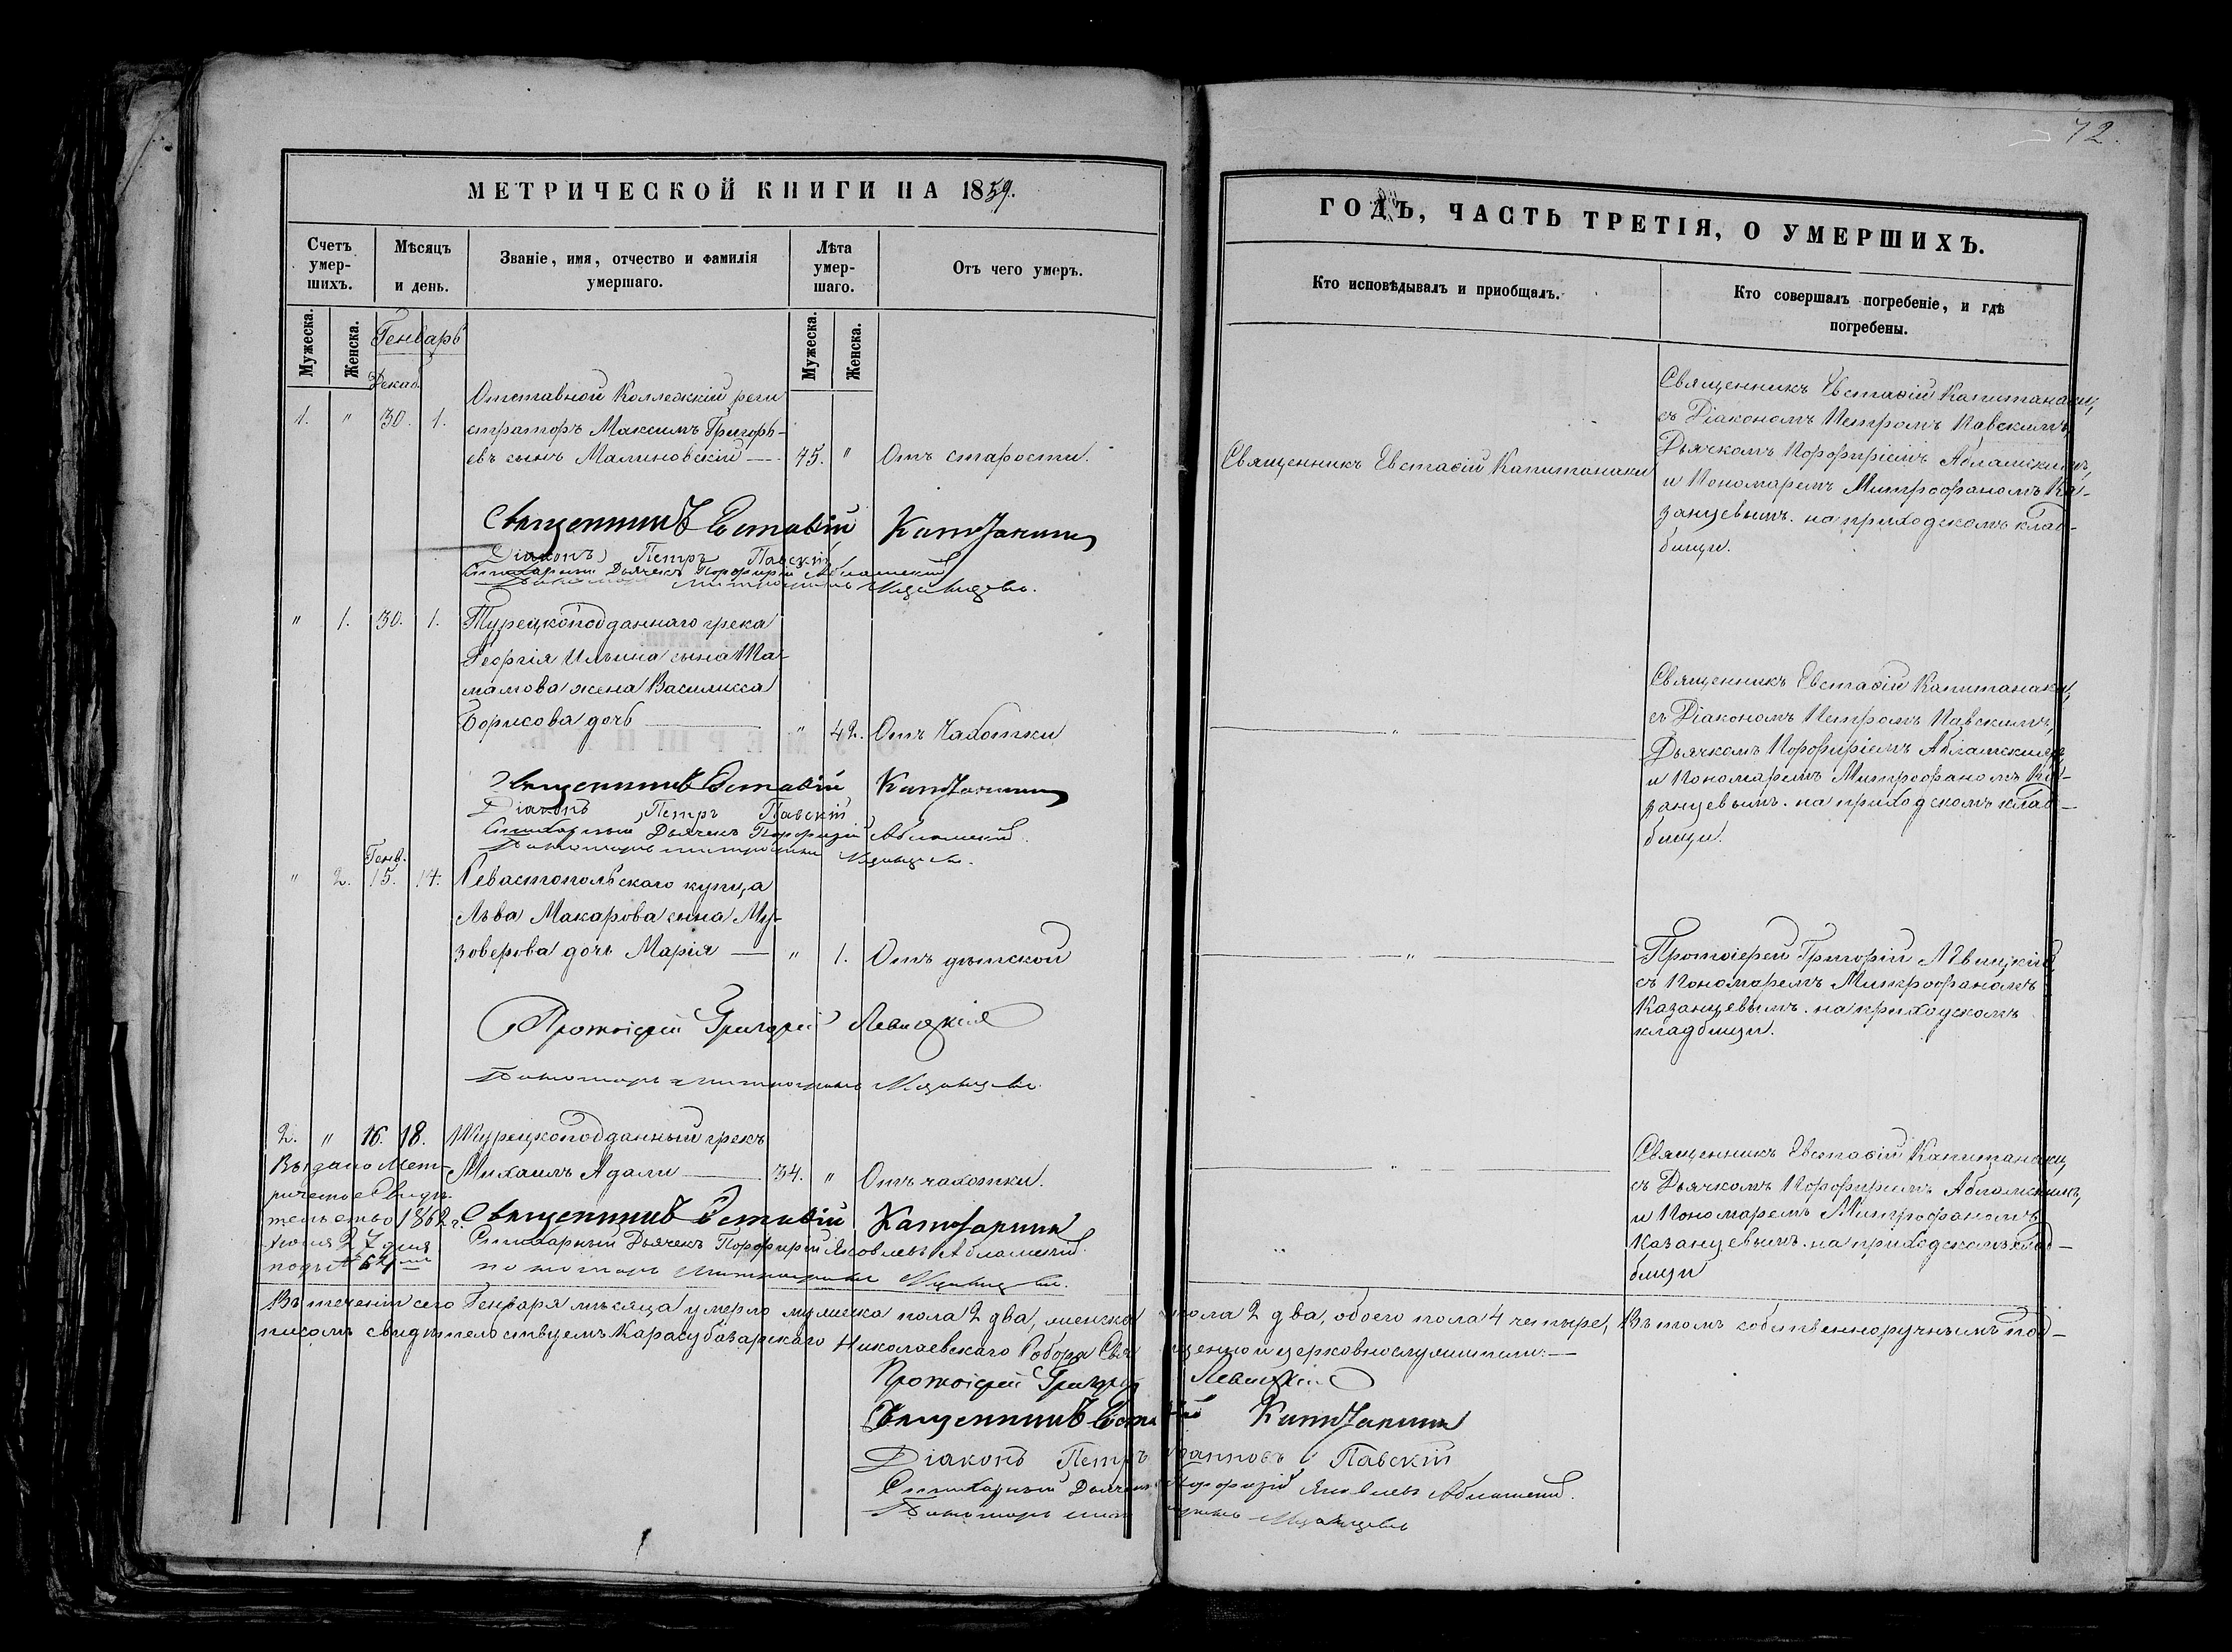 72.
МЕТРИЧЕСКОЙ КНИГИ НА 1859.
ГОДЪ, ЧАСТЬ ТРЕТІЯ, О УМЕРШИХЪ.
Счетъ умер-шихъ.
Мѣсяцъ и день.
Званіе, имя, отчество и фамилія умершаго.
Лѣта умер-шаго.
Отъ чего умеръ.
Кто исповѣдывалъ и приобщалъ.
Кто совершалъ погребеніе, и гдѣ погребены.
Мужеска.
Женска.
Генварь
Мужеска.
Женска.
Декаб.
1. " 30. 1.
Отставной Коллежскій реги
страторъ Максимъ Григорь-
евъ сынъ Малиновскій
75. " Отъ старости.
Священникъ Евстафій Капитанаки
Священникъ Евстафій Капитанаки,
съ Діакономъ Петромъ Павскимъ,
Дьячкомъ Порфиріемъ Абламскимъ,
и Пономаремъ Митрофаномъ Ка-
занцевымъ. на приходскомъ клад-
бищи.
Священникъ Евстафій Капитанаки
Діаконъ Петръ Павскій
Стихарный Дьячекъ Порфирій Абламскій
Пономарь Митрофанъ Казанцевъ.
" 1. 30. 1.
Турецкоподданнаго грека
Георгія Ильина сына Ма-
мамова жена Василисса
Борисова дочь
" 42. Отъ Чахотки
"
Священникъ Евстафій Капитанаки,
съ Діакономъ Петромъ Павскимъ,
Дьячкомъ Порфиріемъ Абламскимъ,
и Пономаремъ Митрофаномъ Ка-
занцевымъ. на приходскомъ клад-
бищи.
Священникъ Евстафій Капитанаки
Діаконъ Петръ Павскій
Стихарный Дьячекъ Порфирій Абламскій.
Пономарь Митрофанъ Казанцевъ.
Генв.
" 2. 15. 17.
Севастопольскаго купца
Льва Макарова сына Му-
зоверова дочь Марія
" 1. Отъ дѣтской
"
Протоіерей Григорій Лѣвицкій,
съ Пономаремъ Митрофаномъ
Казанцевымъ. на приходскомъ
кладбищи.
Протоіерей Григорій Левицкій
Пономарь Митрофанъ Казанцевъ.
2. " 16. 18.
Турецкоподданный грекъ
Михаилъ Адали
34. " Отъ чахотки.
"
Священникъ Евстафій Капитанаки,
съ Дьячкомъ Порфиріемъ Абламскимъ,
и Пономаремъ Митрофаномъ
Казанцевымъ. на приходскомъ клад-
бищи
Выдано Мет-
рическое Свидѣ
тельство 1862 г.
27 дня
подъ № 64
Священникъ Евстафій Капитанаки
Стихарный Дьячекъ Порфирій Яковлевъ Абламскій.
пономарь Митрофанъ Казанцевъ.
Въ теченіи сего Генваря мѣсяца умерло мужеска пола 2 два, женска пола 2 два, обоего пола 4 четыре, Въ томъ собственноручнымъ под-
писомъ свидѣтельствуемъ Карасубазарскаго Николаевскаго Собора Священно и церковнослужители:
Протоіерей Григорій Левицкій
Священникъ Евстафій Капитанаки
Діаконъ Петръ Іоанновъ Павскій
Стихарный Дьячекъ Порфирій Яковлевъ Абламскій.
Пономарь Митрофанъ Казанцевъ